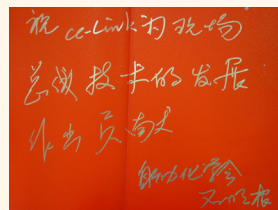 祝 cc-Link 为现场
总线技术的发展
作出贡献
自动化学会